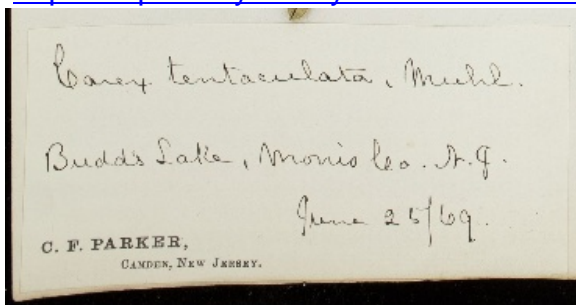 Carex tentaculata, Muhl.
Budd's Lake, Morris Co. N.J.
June 25/69.
C. F. PARKER,
CAMDEN, NEW JERSEY.